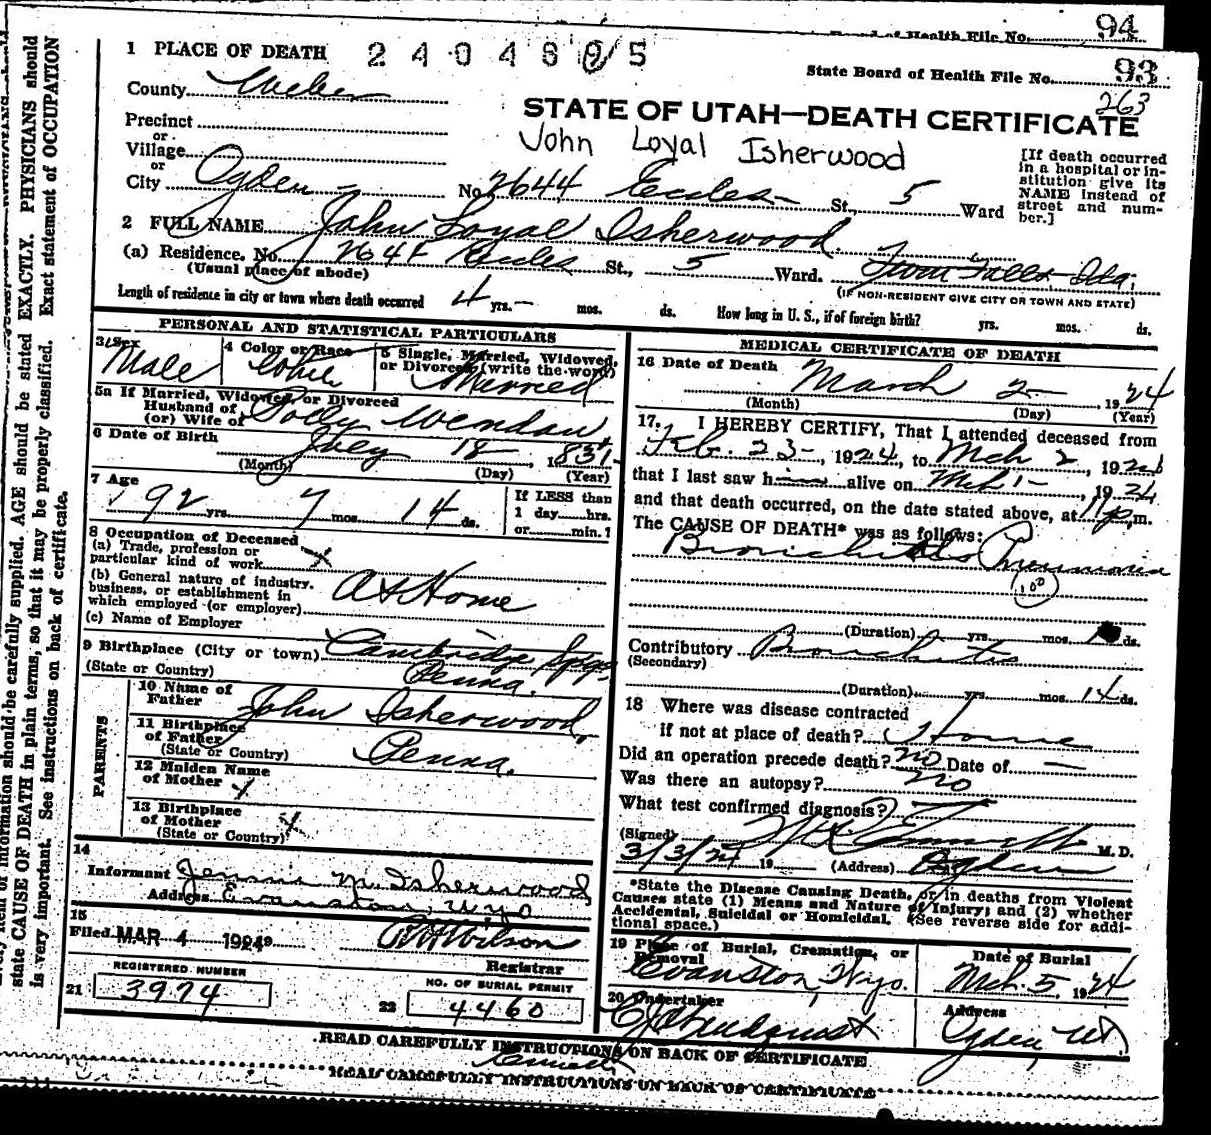 94
Board of Health File No.
1 PLACE OF DEATH 2404895
State Board of Health File No. 93
263
County Weber
STATE OF UTAH—DEATH CERTIFICATE
Precinct
or
Village
John Loyal Isherwood
[If death occurred in a hospital or institution give its NAME instead of street and number.]
or
City Ogden No. 2644 Eccles St., 5 Ward
2 FULL NAME John Loyal Isherwood.
(a) Residence. No. 2644 Eccles St., 5 Ward. Twin Falls, Ida.
(Usual place of abode) (IF NON-RESIDENT GIVE CITY OR TOWN AND STATE)
Length of residence in city or town where death occurred 4 yrs. — mos. ds. How long in U. S., if of foreign birth? yrs. mos. ds.
PERSONAL AND STATISTICAL PARTICULARS
3 Sex Male
4 Color or Race White
5 Single, Married, Widowed, or Divorced (write the word) Married
5a If Married, Widowed, or Divorced
Husband of
(or) Wife of Polly
6 Date of Birth July 18, 1831
(Month) (Day) (Year)
7 Age
92 yrs. 7 mos. 14 ds.
If LESS than
1 day hrs.
or min.?
8 Occupation of Deceased
(a) Trade, profession or
particular kind of work X
(b) General nature of industry,
business, or establishment in
which employed (or employer) At Home
(c) Name of Employer
9 Birthplace (City or town) Cambridge Spgs
(State or Country) Penna.
PARENTS
10 Name of
Father John Isherwood.
11 Birthplace
of Father
(State or Country) Penna.
12 Maiden Name
of Mother X
13 Birthplace
of Mother
(State or Country) X
14
Informant Jennie M. Isherwood
Address Evanston, Wyo
15
Filed MAR 4 1924 Wilson
Registrar
REGISTERED NUMBER
21 3974
NO. OF BURIAL PERMIT
22 4460
MEDICAL CERTIFICATE OF DEATH
16 Date of Death March 2— 1924
(Month) (Day) (Year)
17. I HEREBY CERTIFY, That I attended deceased from
Feb. 23—, 1924, to Mch 2, 1924
that I last saw him alive on Mch 1—, 1924
and that death occurred, on the date stated above, at 11 p.m.
The CAUSE OF DEATH* was as follows:
Pneumonia
100
(Duration) yrs. mos. ds.
Contributory Bronchitis
(Secondary)
(Duration) yrs. mos. 14 ds.
18 Where was disease contracted
if not at place of death? Home
Did an operation precede death? no Date of —
Was there an autopsy? no
What test confirmed diagnosis?
(Signed) M. D.
3/3/24 19 (Address) Ogden
*State the Disease Causing Death, or in deaths from Violent
Causes state (1) Means and Nature of Injury; and (2) whether
Accidental, Suicidal or Homicidal. (See reverse side for additional space.)
19 Place of Burial, Cremation, or
Removal Evanston, Wyo.
Date of Burial
Mch. 5, 1924
20 Undertaker
Address
Ogden, Ut
READ CAREFULLY INSTRUCTIONS ON BACK OF CERTIFICATE
READ CAREFULLY INSTRUCTIONS ON BACK OF CERTIFICATE
information should be carefully supplied. AGE should be stated EXACTLY. PHYSICIANS should
state CAUSE OF DEATH in plain terms, so that it may be properly classified. Exact statement of OCCUPATION
is very important. See instructions on back of certificate.